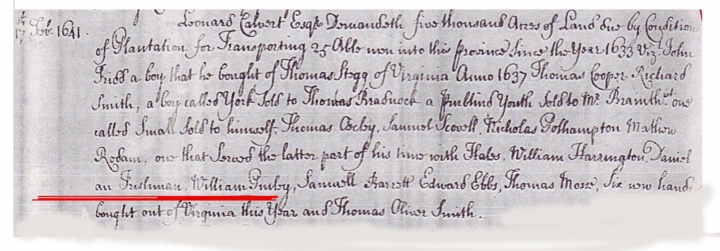 17 Feb: 1641. Leonard Calvert Esqr Demandeth five thousand Acres of Land due by Condition
of Plantation for Transporting 25 Able men into this province Since the Year 1633 Viz.t John
a boy that he bought of Thomas Stegg of Virginia Anno 1637 Thomas Cooper Richard
Smith, a boy called York Sold to Thomas Bradnock a Youth Sold to Mr. one
called Small Sold to himself, Thomas Samuel Scovell, Nicholas Polhampton Mathew
Rodam, one that Served the latter part of his time with Hales, William Harrington, Daniel
an Irishman, William Pinley, Samuell Barrett Edward Ebbs, Thomas Moss, Six new hands
bought out of Virginia this Year and Thomas Oliver Smith.